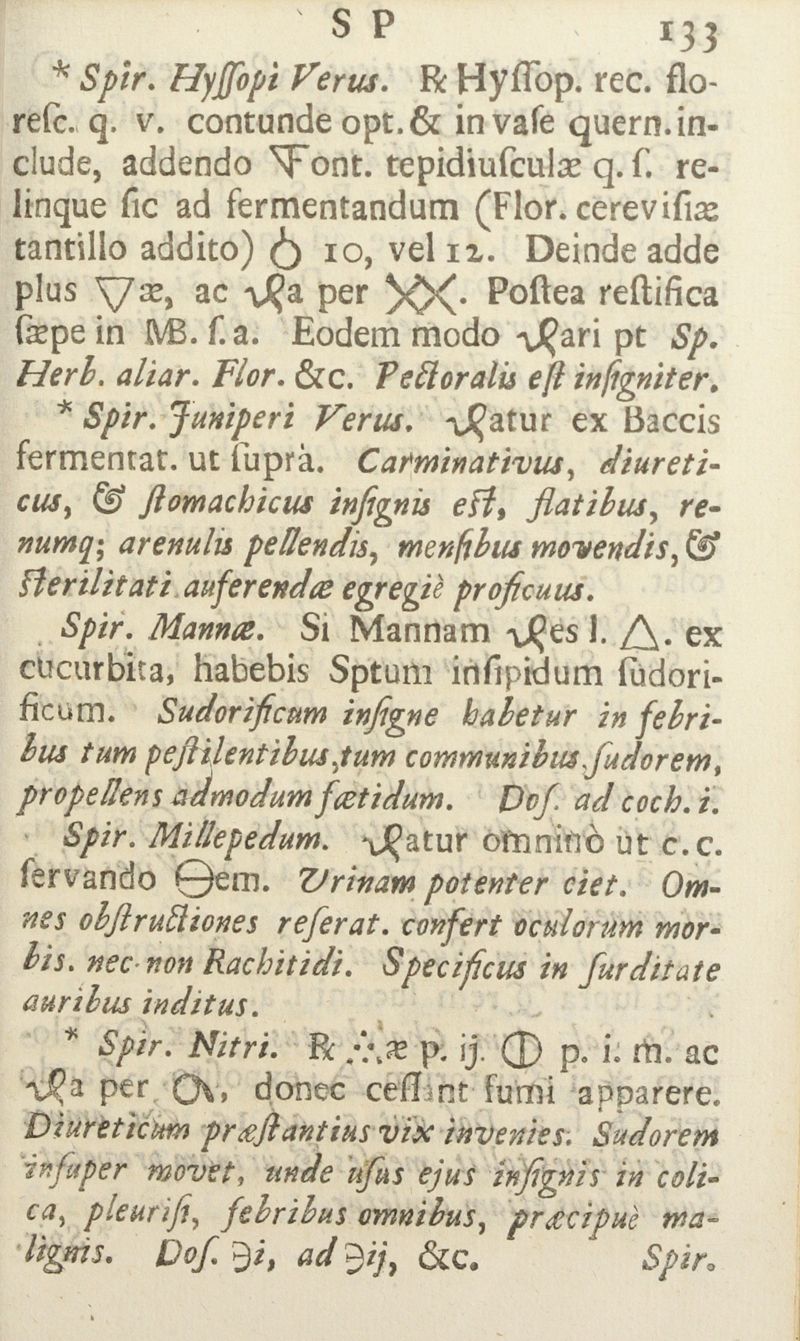 S P 133
* Spir. Hyſſopi Verus. ℞ Hyſſop. rec. flo-
reſc. q. v. contunde opt. & in vaſe quern. in-
clude, addendo 🜄Font. tepidiuſculæ q. ſ. re-
linque ſic ad fermentandum (Flor. cereviſiæ
tantillo addito) 10, vel 12. Deinde adde
plus 🜄æ, ac a per XX. Poſtea reſtifica
ſæpe in MB. ſ. a. Eodem modo ari pt Sp.
Herb. aliar. Flor. &c. Pectoralis eſt inſigniter.
* Spir. Juniperi Verus. atur ex Baccis
fermentat. ut ſuprà. Carminativus, diureti-
cus, & ſtomachicus inſignis eſt, flatibus, re-
numq; arenulis pellendis, menſibus movendis, &
ſterilitati auferendæ egregiè proficuus.
Spir. Mannæ. Si Mannam es l. 🜂. ex
cucurbita, habebis Sptum inſipidum ſudori-
ficum. Sudorificum inſigne habetur in febri-
bus tum peſtilentibus, tum communibus ſudorem,
propellens admodum fœtidum. Doſ. ad coch. i.
Spir. Millepedum. atur omninò ut c. c.
ſervando 🜔em. Urinam potenter ciet. Om-
nes obſtructiones reſerat. confert oculorum mor-
bis. nec-non Rachitidi. Specificus in ſurditate
auribus inditus.
* Spir. Nitri. ℞ æ p. ij. 🜕 p. i. m. ac
a per, donec ceſſant fumi apparere.
Diureticum præſtantius vix invenies. Sudorem
inſuper movet, unde uſus ejus inſignis in coli-
ca, pleuriſi, febribus omnibus, præcipuè ma-
lignis. Doſ. ℈i, ad ℈ij, &c. Spir.